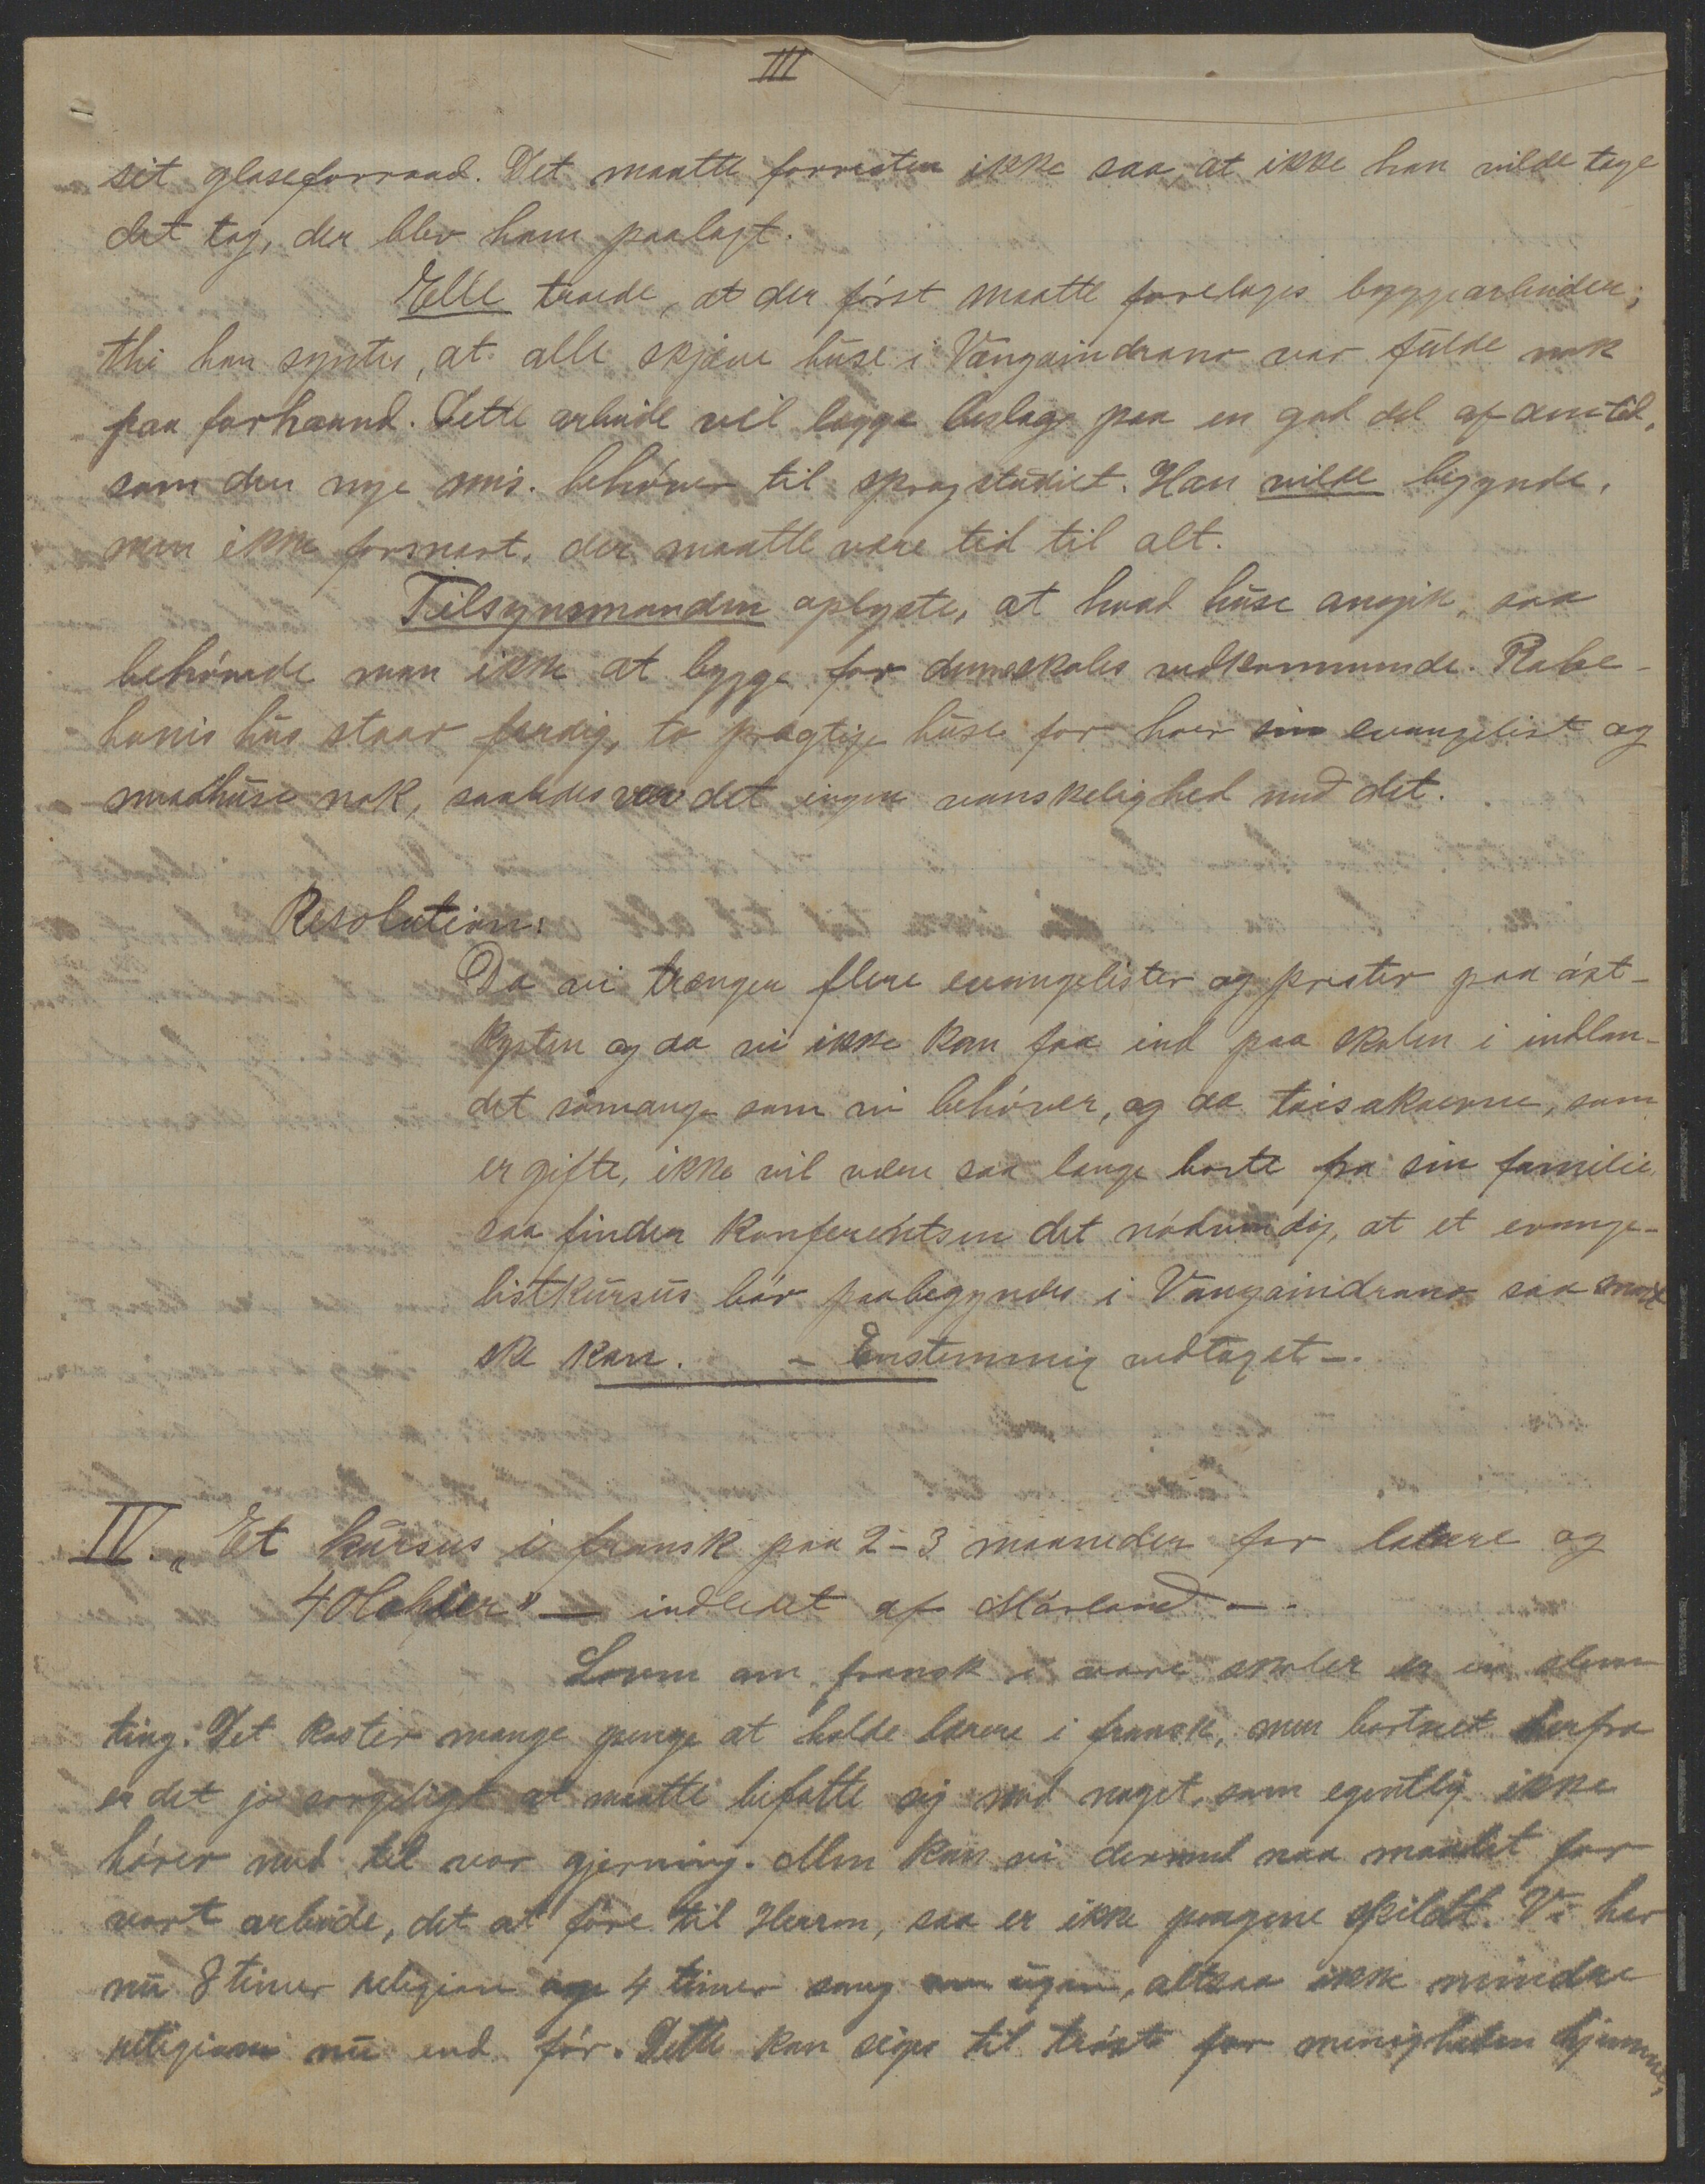 III
sit gloseforraad. Det maatte forresten ikke saa, at ikke han vilde tage
det tag, der blev ham paalagt.
Elle troede, at der först maatte foretages byggearbeider;
thi han syntes, at alle skjæve huse i Vangaindrano var fulde nok
paa forhaand. Dette arbeide vil lægge beslag paa en god del af den tid,
som den nye mis. behöver til sprogstudiet. Han vilde begynde,
men ikke forsnart, der maatte være tid til alt.
Tilsynsmanden oplyste, at hvad huse angik, saa
behövede man ikke at bygge for denne skoles vedkommende. Rabe-
hanis hus staar færdig, to prægtige huse for hver sin evangelist og
madhuse nok, saaledes var det ingen vanskelighed med det.
Resolution:
Da vi trænger flere evangelister og prester paa öst-
kysten og da vi ikke kan faa ind paa skolen i indlan-
det såmange som vi behöver, og da taisakaerne, som
er gifte, ikke vil være saa længe borte fra sin familie,
saa finder Konferentsen det nödvendig, at et evange-
listkursus bör paabegyndes i Vangaindrano saa snart
ske kan. - Enstemmig vedtaget -.
IV. „Et kursus i fransk paa 2-3 maaneder for lærere og
indledet af Mörland -.
Loven om fransk i vore skoler er en slem
ting. Det koster mange penge at holde lærere i fransk, men bortset herfra
er det jo sorgeligt at maatte befatte sig med noget, som egentlig ikke
hörer med til vor gjerning. Men kan vi dermed naa maalet for
vort arbeide, det at före til Herren, saa er ikke pengene spildt. Vi har
nu 8 timer religion og 4 timer sang om ugen, altsaa ikke mindre
religion nu end för. Dette kan siges til tröst for menigheden hjemme,